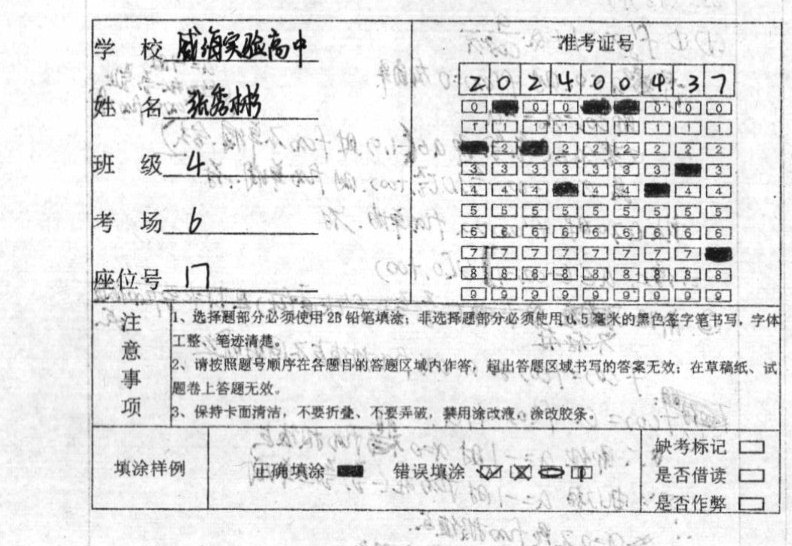 学 校 威海实验高中
准考证号
2 0 2 4 0 0 4 3 7
姓 名 张秀彬
班 级 4
考 场 6
座位号 17
0 0 0 0 0 0
1 1 1 1 1 1 1 1 1
2 2 2 2 2 2 2
3 3 3 3 3 3 3 3
4 4 4 4 4 4 4
5 5 5 5 5 5 5 5 5
6 6 6 6 6 6 6 6 6
7 7 7 7 7 7 7 7
8 8 8 8 8 8 8 8 8
9 9 9 9 9 9 9 9 9
注意事项
1、选择题部分必须使用2B铅笔填涂；非选择题部分必须使用0.5毫米的黑色签字笔书写，字体
工整、笔迹清楚。
2、请按照题号顺序在各题目的答题区域内作答，超出答题区域书写的答案无效；在草稿纸、试
题卷上答题无效。
3、保持卡面清洁，不要折叠、不要弄破，禁用涂改液、涂改胶条。
填涂样例 正确填涂 错误填涂
缺考标记
是否借读
是否作弊